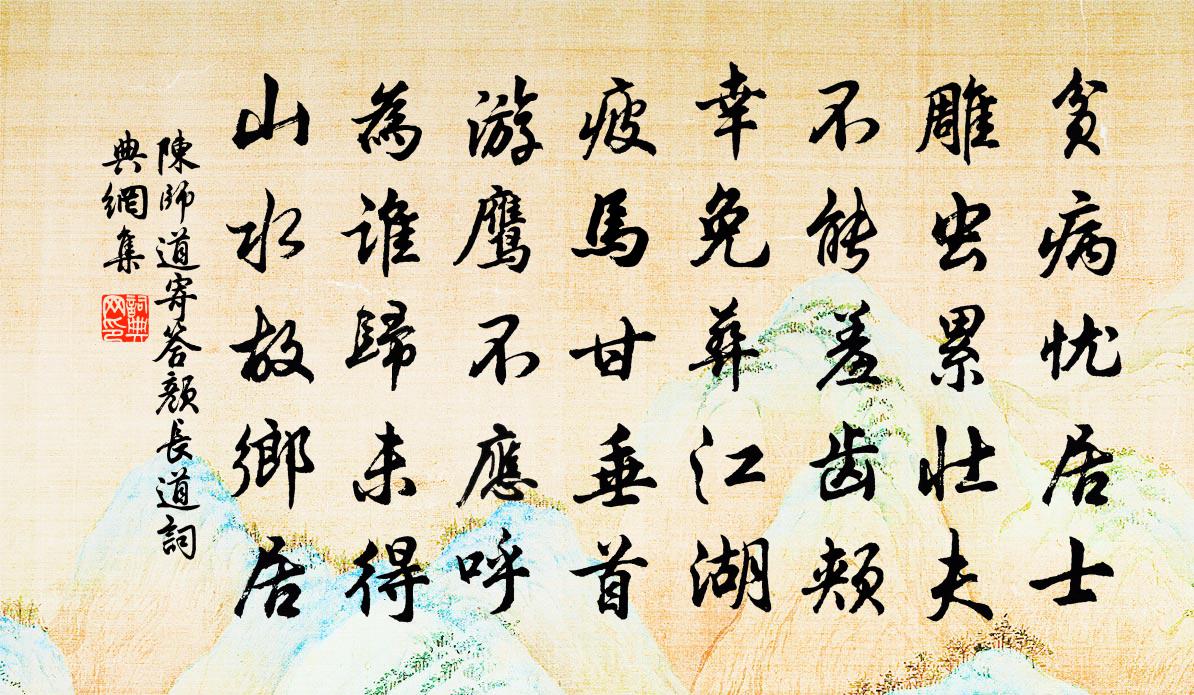 贫病忧居士
雕虫累壮夫
不能羞齿颊
幸免葬江湖
疲馬甘垂首
游鹰不應呼
為誰歸未得
山水故鄉居
陳師道寄答顏長道詞
典網集
詞典
网印